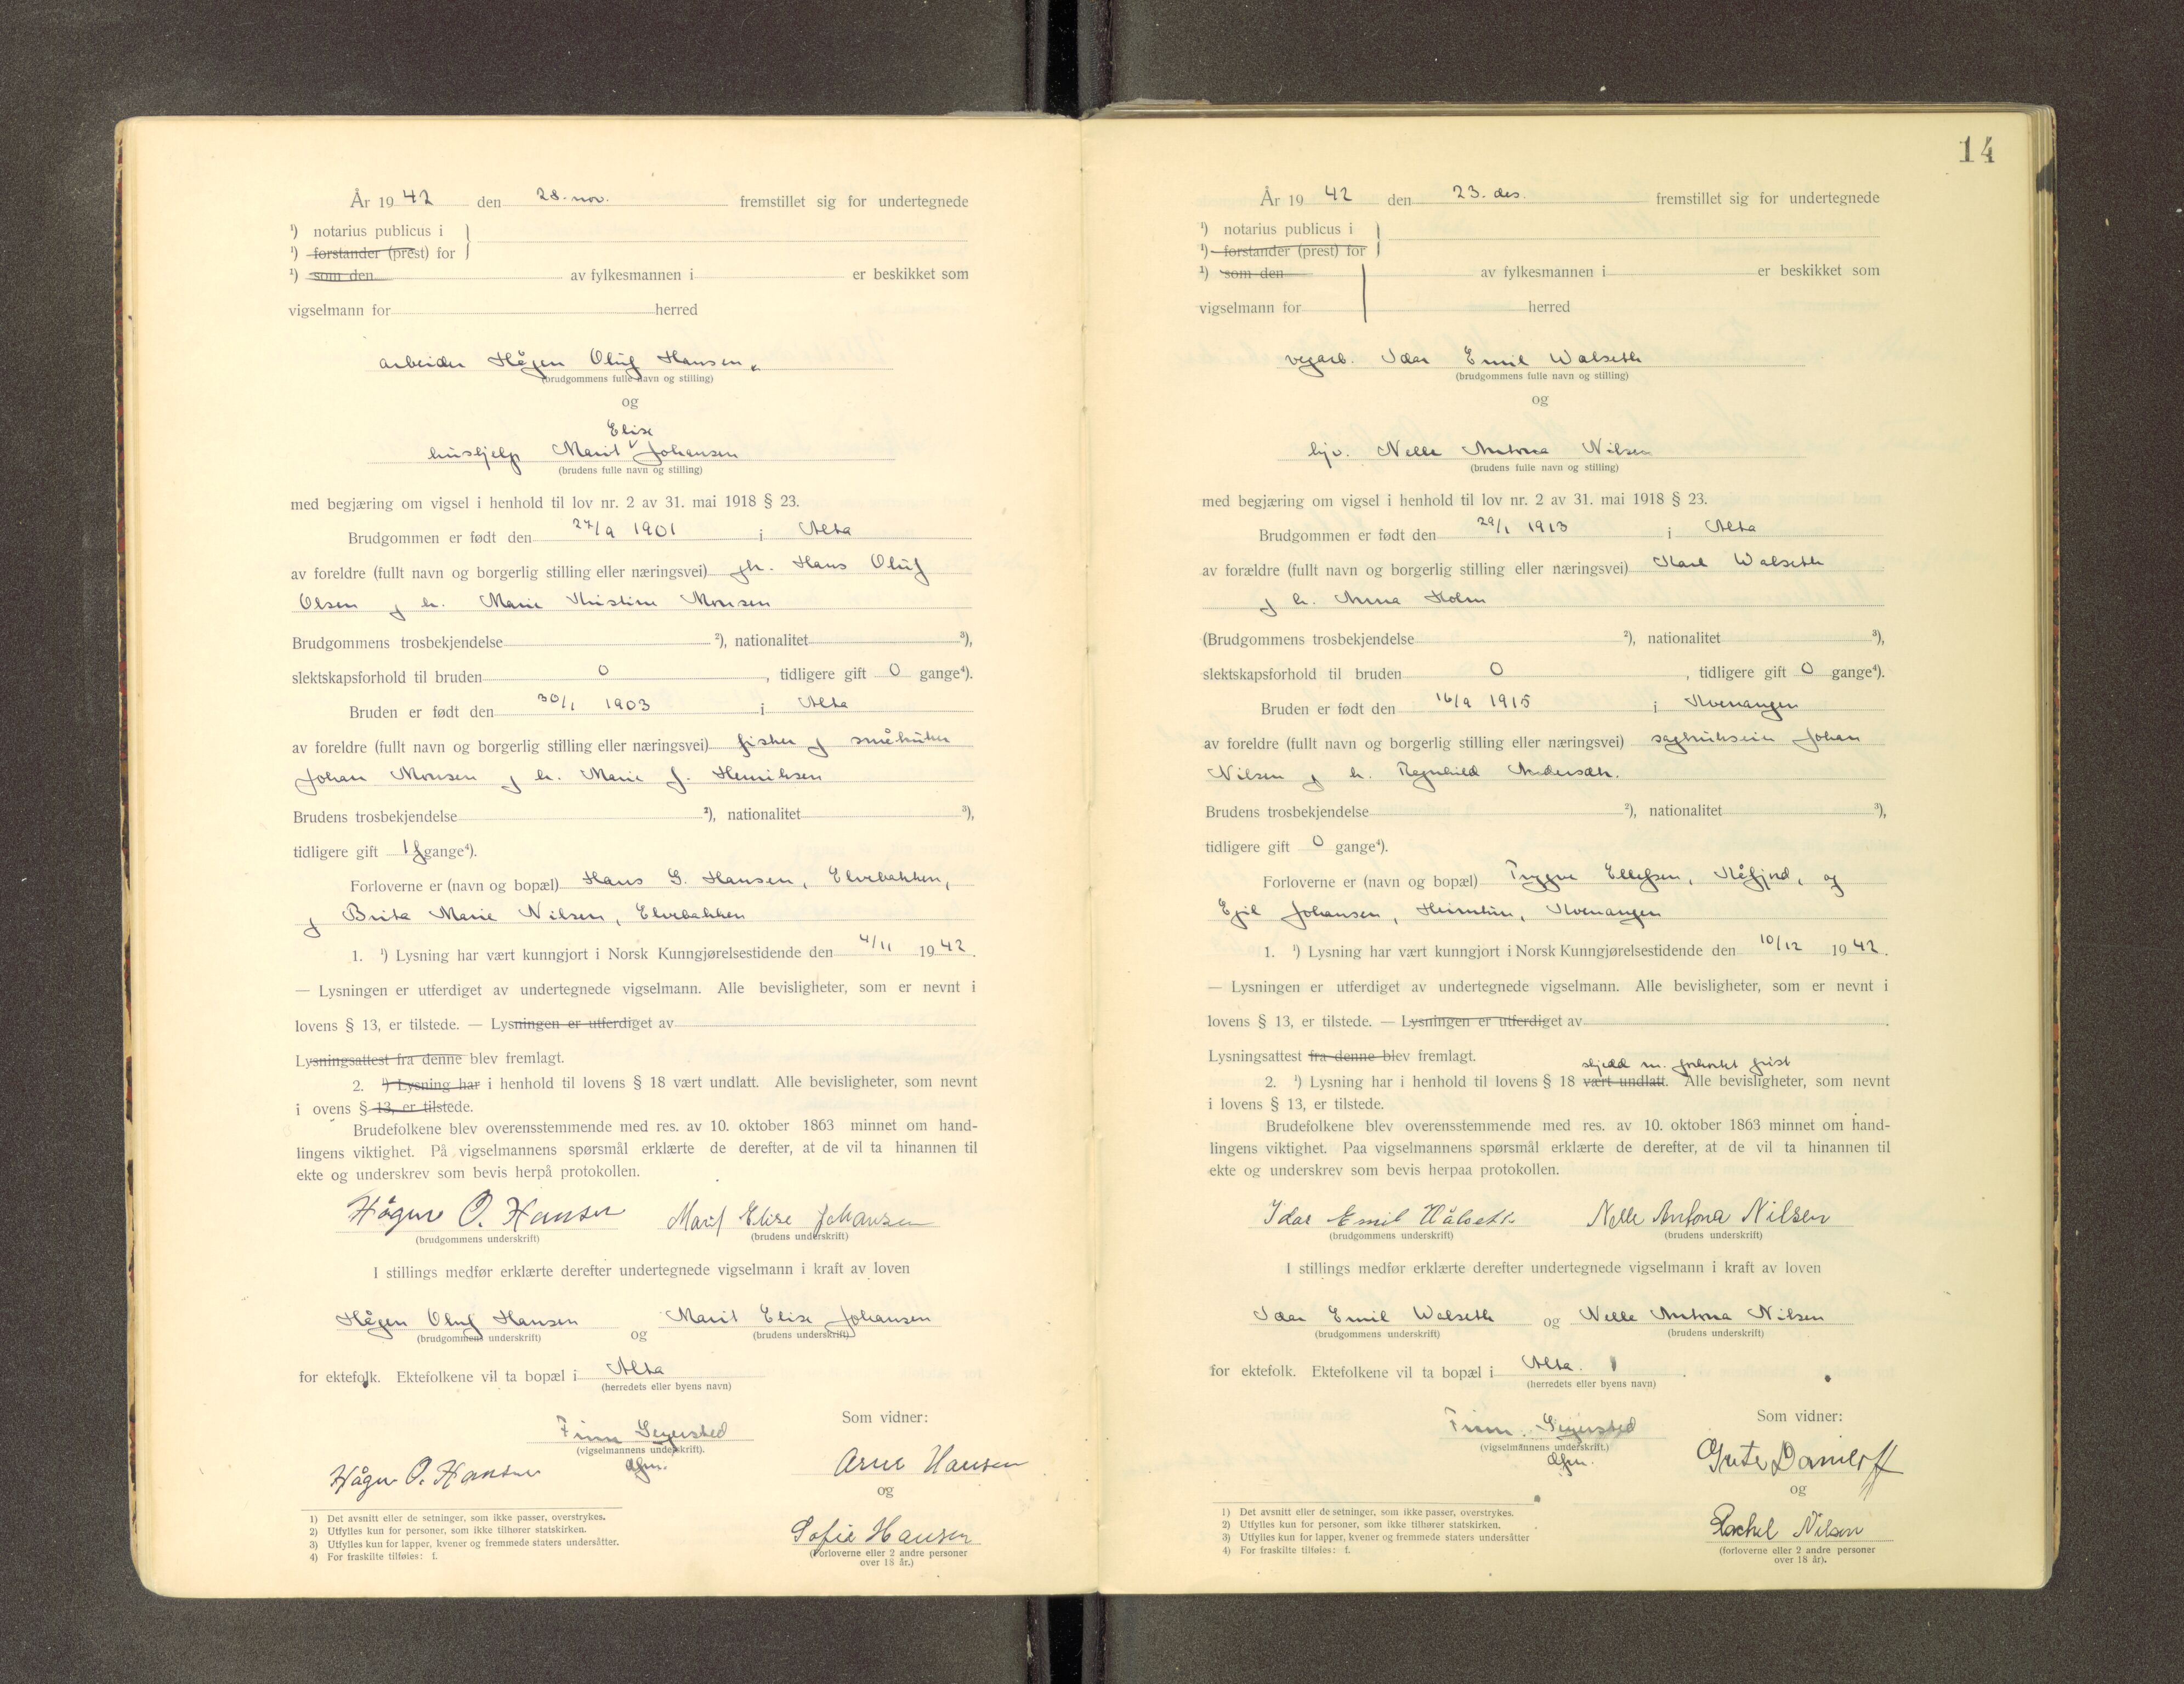 År 1942 den 28. nov. fremstillet sig for undertegnede
¹) notarius publicus i
¹) forstander (prest) for
¹) som den av fylkesmannen i er beskikket som
vigselmann for herred
arbeider Hågen Oluf Hansen
(brudgommens fulle navn og stilling)
og
Elise
hushjelp Marit Johansen
(brudens fulle navn og stilling)
med begjæring om vigsel i henhold til lov nr. 2 av 31. mai 1918 § 23.
Brudgommen er født den 27/9 1901 i Alta
av foreldre (fullt navn og borgerlig stilling eller næringsvei) Hans Oluf
Olsen og h. Marie Kristine Monsen
Brudgommens trosbekjendelse ²), nationalitet ³),
slektskapsforhold til bruden 0, tidligere gift 0 gange⁴).
Bruden er født den 30/1 1903 i Alta
av foreldre (fullt navn og borgerlig stilling eller næringsvei) fisker og småbruker
Johan Monsen og h. Marie J. Henriksen
Brudens trosbekjendelse ²), nationalitet ³),
tidligere gift 1 f gange⁴).
Forloverne er (navn og bopæl) Hans G. Hansen, Elvebakken,
og Brita Marie Nilsen, Elvebakken
1. ¹) Lysning har vært kunngjort i Norsk Kunngjørelsestidende den 4/11 1942.
— Lysningen er utferdiget av undertegnede vigselmann. Alle bevisligheter, som er nevnt i
lovens § 13, er tilstede. — Lysningen er utferdiget av
Lysningsattest fra denne blev fremlagt.
2. ¹) Lysning har i henhold til lovens § 18 vært undlatt. Alle bevisligheter, som nevnt
i ovens § 13, er tilstede.
Brudefolkene blev overensstemmende med res. av 10. oktober 1863 minnet om hand-
lingens viktighet. På vigselmannens spørsmål erklærte de derefter, at de vil ta hinannen til
ekte og underskrev som bevis herpå protokollen.
Hågen O. Hansen Marit Elise Johansen
(brudgommens underskrift) (brudens underskrift)
I stillings medfør erklærte derefter undertegnede vigselmann i kraft av loven
Hågen Oluf Hansen og Marit Elise Johansen
(brudgommens underskrift) (brudens underskrift)
for ektefolk. Ektefolkene vil ta bopæl i Alta
(herredets eller byens navn)
Som vidner:
Finn Segersted
(vigselmannens underskrift).
Hågen O. Hansen
Arne Hansen
og
Sofie Hansen
(Forloverne eller 2 andre personer
over 18 år.)
1) Det avsnitt eller de setninger, som ikke passer, overstrykes.
2) Utfylles kun for personer, som ikke tilhører statskirken.
3) Utfylles kun for lapper, kvener og fremmede staters undersåtter.
4) For fraskilte tilføies: f.
14
År 1942 den 23. des. fremstillet sig for undertegnede
¹) notarius publicus i
¹) forstander (prest) for
¹) som den av fylkesmannen i er beskikket som
vigselmann for herred
vegarb. Idar Emil Walseth
(brudgommens fulle navn og stilling)
og
hjv. Nelle Antona Nilsen
(brudens fulle navn og stilling)
med begjæring om vigsel i henhold til lov nr. 2 av 31. mai 1918 § 23.
Brudgommen er født den 29/1 1913 i Alta
av forældre (fullt navn og borgerlig stilling eller næringsvei) Karl Walseth
og h. Anna Holm
(Brudgommens trosbekjendelse ²), nationalitet ³),
slektskapsforhold til bruden 0, tidligere gift 0 gange⁴).
Bruden er født den 16/9 1915 i Kvenangen
av foreldre (fullt navn og borgerlig stilling eller næringsvei) sagbrukseier Johan
Nilsen og h. Ragnhild Andersdtr.
Brudens trosbekjendelse ²), nationalitet ³),
tidligere gift 0 gange⁴).
Forloverne er (navn og bopæl) Trygve Ellefsen, Kåfjord, og
Egil Johansen, Kvenangen
1. ¹) Lysning har vært kunngjort i Norsk Kunngjørelsestidende den 10/12 1942.
— Lysningen er utferdiget av undertegnede vigselmann. Alle bevisligheter, som er nevnt i
lovens § 13, er tilstede. — Lysningen er utferdiget av
Lysningsattest fra denne blev fremlagt.
skjedd m. forkortet frist
2. ¹) Lysning har i henhold til lovens § 18 vært undlatt. Alle bevisligheter, som nevnt
i lovens § 13, er tilstede.
Brudefolkene blev overensstemmende med res. av 10. oktober 1863 minnet om hand-
lingens viktighet. Paa vigselmannens spørsmål erklærte de derefter, at de vil ta hinannen til
ekte og underskrev som bevis herpaa protokollen.
Idar Emil Walseth Nelle Antona Nilsen
(brudgommens underskrift) (brudens underskrift)
I stillings medfør erklærte derefter undertegnede vigselmann i kraft av loven
Idar Emil Walseth og Nelle Antona Nilsen
(brudgommens underskrift) (brudens underskrift)
for ektefolk. Ektefolkene vil ta bopæl i Alta.
(herredets eller byens navn)
Som vidner:
Finn Segersted
(vigselmannens underskrift.)
Grete Daniloff
og
Rachel Nilsen
(forloverne eller 2 andre personer
over 18 år).
1) Det avsnitt eller de setninger, som ikke passer, overstrykes.
2) Utfylles kun for personer, som ikke tilhører statskirken.
3) Utfylles kun for lapper, kvener og fremmede staters undersåtter
4) For fraskilte tilføies: f.